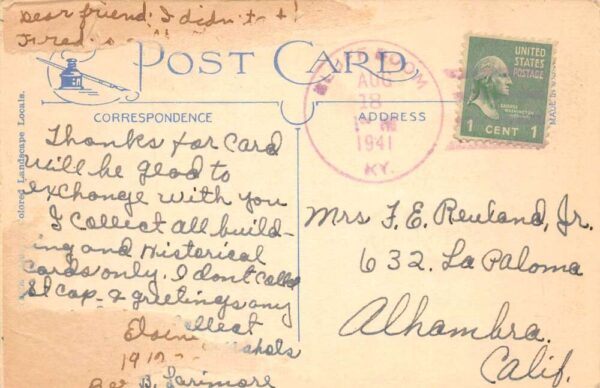 Dear friend: I didn't
Fred
POST CARD
CORRESPONDENCE
ADDRESS
ROOM
AUG
18
1941
KY.
UNITED
STATES
POSTAGE
GEORGE
WASHINGTON
1 CENT 1
MADE IN U.S.A.
Colored Landscape Locals.
Thanks for card
Will be glad to
exchange with you
I collect all build-
ing and Historical
Cards only. I dont
St cap. & greetings any
collect
1912
B. Larimore
Mrs F. E. Reuland, Jr.
632. La Paloma
Alhambra.
Calif.